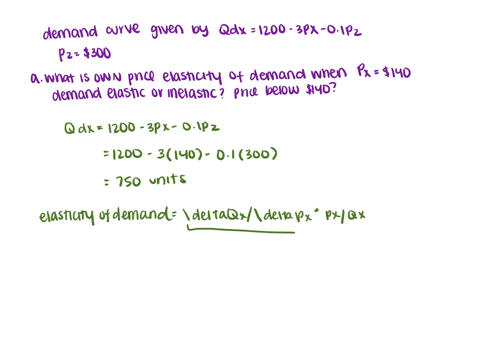 demand curve given by Qdx = 1200 - 3Px - 0.1Pz
Pz = $300
a. What is own price elasticity of demand when Px = $140
demand elastic or inelastic? price below $140?
Qdx = 1200 - 3Px - 0.1Pz
= 1200 - 3(140) - 0.1(300)
= 750 units
elasticity of demand = \deltaQx/\deltaPx * Px/Qx